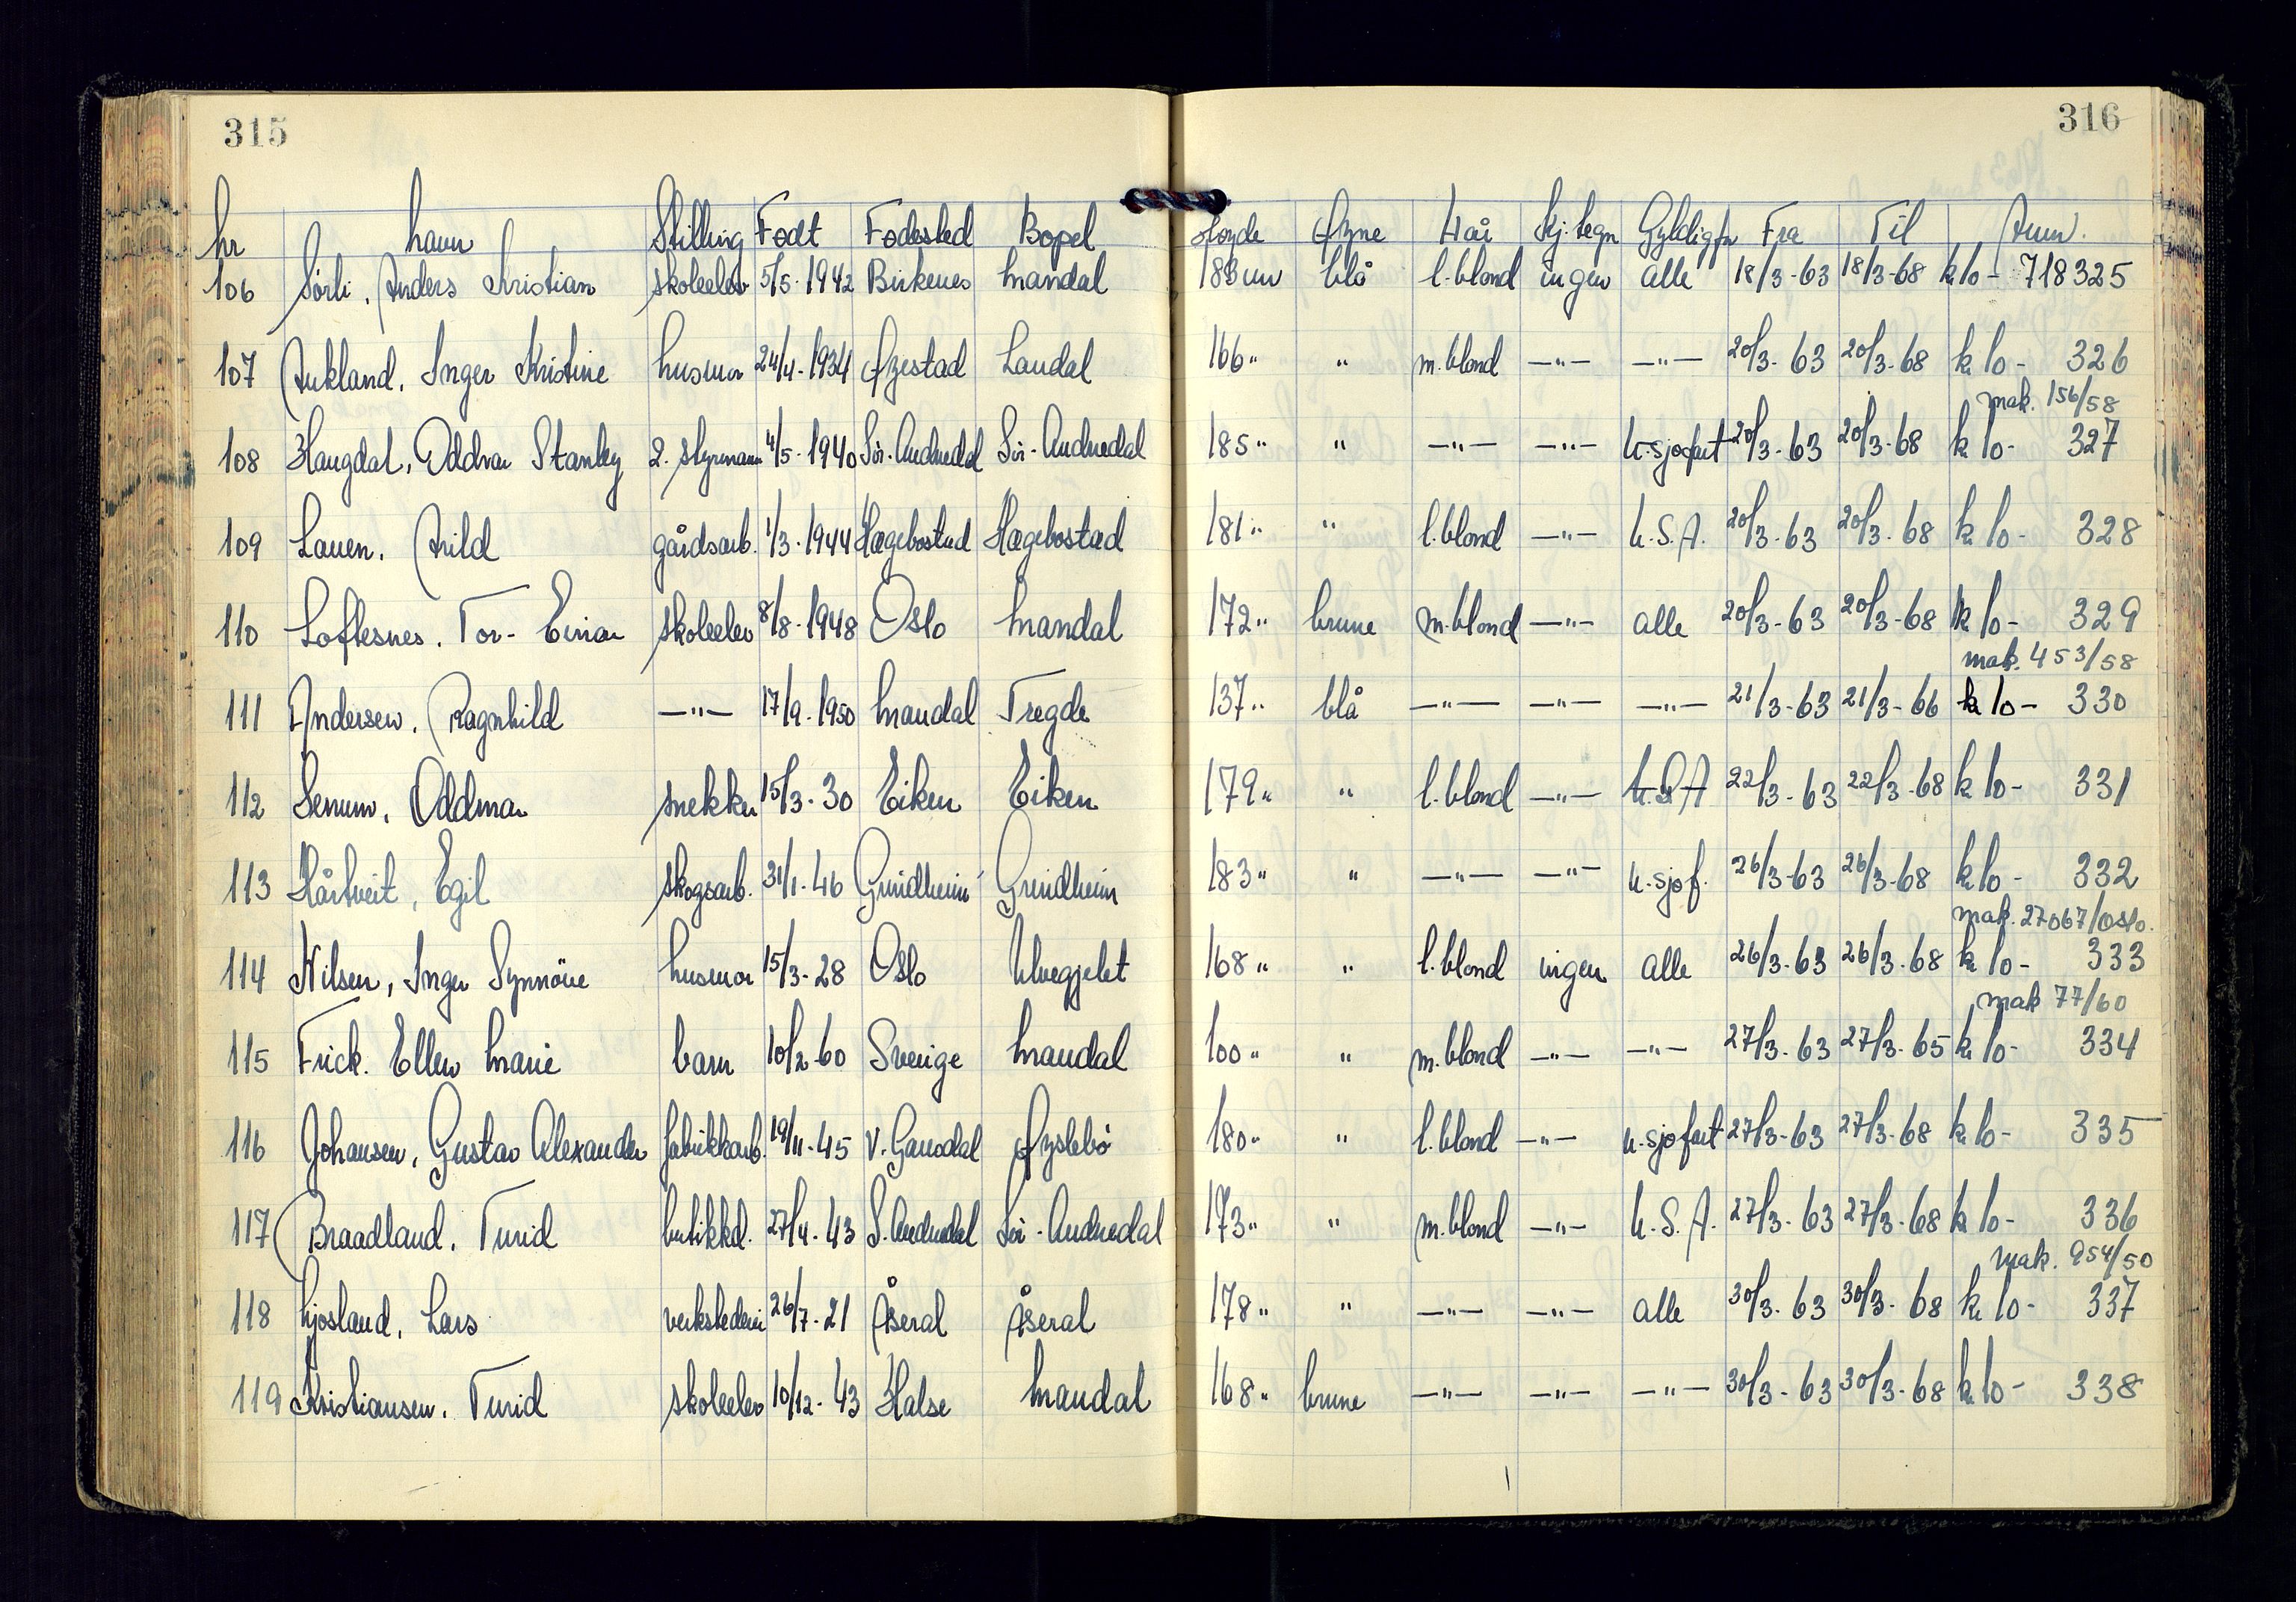 315
316
Nr Navn Stilling Født Fødested Bopel Høyde Øyne Hår Kj.tegn Gyldig for Fra Til Anm.
106 Sørli, Anders Kristian skoleelev 5/5-1942 Birkenes Mandal 183 cm blå l.blond ingen alle 18/3-63 18/3-68 kr 10- 718325
107 Aukland, Inger Kristine husmor 24/4-1934 Øyestad Laudal 166 " " m.blond -"- -"- 20/3-63 20/3-68 kr 10- 326
mak. 156/58
108 Haugdal, Oddvar Stanley 2. styrmann 4/5-1940 Sør-Audnedal Sør-Audnedal 185 " " -"- -"- u.sjøfart 20/3-63 20/3-68 kr 10- 327
109 Lauen, Arild gårdsarb. 1/3-1944 Hægebostad Hægebostad 181 " " l.blond -"- U.S.A. 20/3-63 20/3-68 kr 10- 328
110 Loftesnes, Tor-Einar skoleelev 8/8-1948 Oslo Mandal 172 " brune m.blond -"- alle 20/3-63 20/3-68 kr 10- 329
mak. 453/58
111 Andersen, Ragnhild -"- 17/9-1950 Mandal Tregde 137 " blå -"- -"- -"- 21/3-63 21/3-66 kr 10- 330
112 Senum, Oddmar snekker 15/3-30 Eiken Eiken 179 " " l.blond -"- U.S.A 22/3-63 22/3-68 kr 10- 331
113 Hårtveit, Egil skogsarb. 31/1-46 Grindheim Grindheim 183 " " -"- -"- u.sjøf. 26/3-63 26/3-68 kr 10- 332
mak. 27067/Oslo.
114 Nilsen, Inger Synnöve husmor 15/3-28 Oslo Ulvegjelet 168 " " l.blond ingen alle 26/3-63 26/3-68 kr 10- 333
mak 77/60
115 Frick. Ellen Marie barn 10/2-60 Sverige Mandal 100 " " m.blond -"- -"- 27/3-63 27/3-65 kr 10- 334
116 Johansen, Gustav Alexander fabrikkarb. 19/11-45 V. Gausdal Øyslebö 180 " " l.blond -"- u.sjøfart 27/3-63 27/3-68 kr 10- 335
117 Braadland, Turid butikkd. 27/4-43 S.Audnedal Sør-Audnedal 173 " " m.blond -"- U.S.A. 27/3-63 27/3-68 kr 10- 336
mak. 954/50
118 Ljosland, Lars verkstedeier 26/7-21 Åseral Åseral 178 " " -"- -"- alle 30/3-63 30/3-68 kr 10- 337
119 Kristiansen, Turid skoleelev 10/12-43 Halse Mandal 168 " brune -"- -"- -"- 30/3-63 30/3-68 kr 10- 338